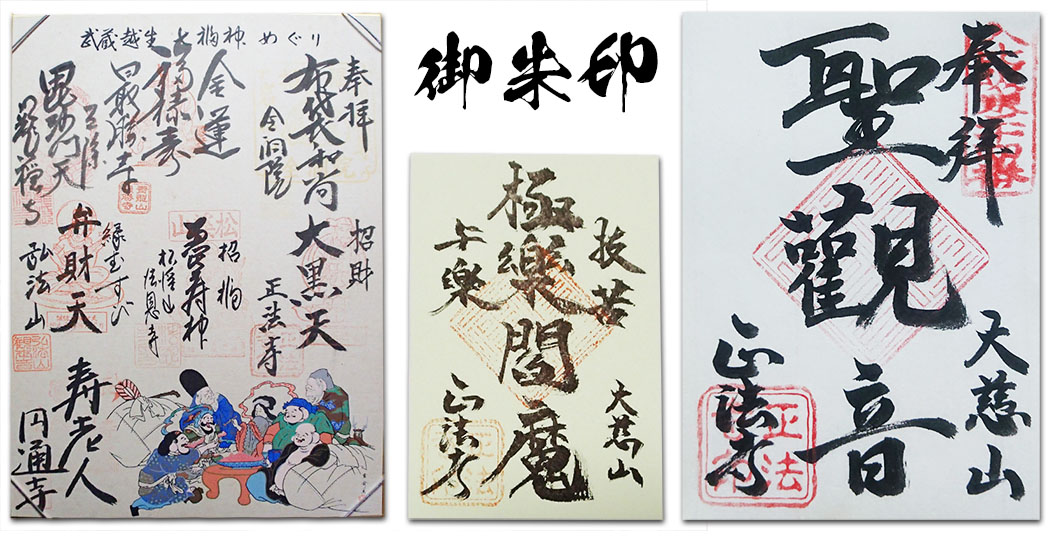 御朱印
武蔵越生七福神めぐり
奉拝
布袋和尚
金運
福禄寿
最勝寺
毘沙門天
招財
大黒天
正法寺
招福
恵比寿神
松渓山
法恩寺
縁むすび
弁財天
弘法山
寿老人
円通寺
抜苦
極樂閻魔
与楽
大慈山
正法寺
奉拝
聖觀音
大慈山
正法寺
正法